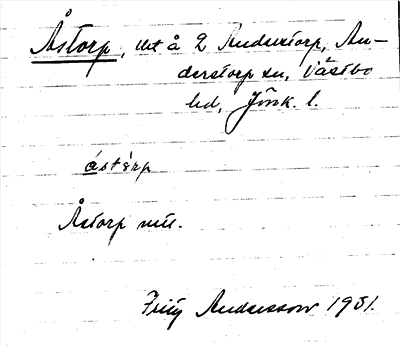 Åstorp, utj å 2 Anderstorp, An-
derstorp sn, Västbo
hd, Jönk. l.
åstòrp
Åstorp mtl.
Fritz Andersson 1931.